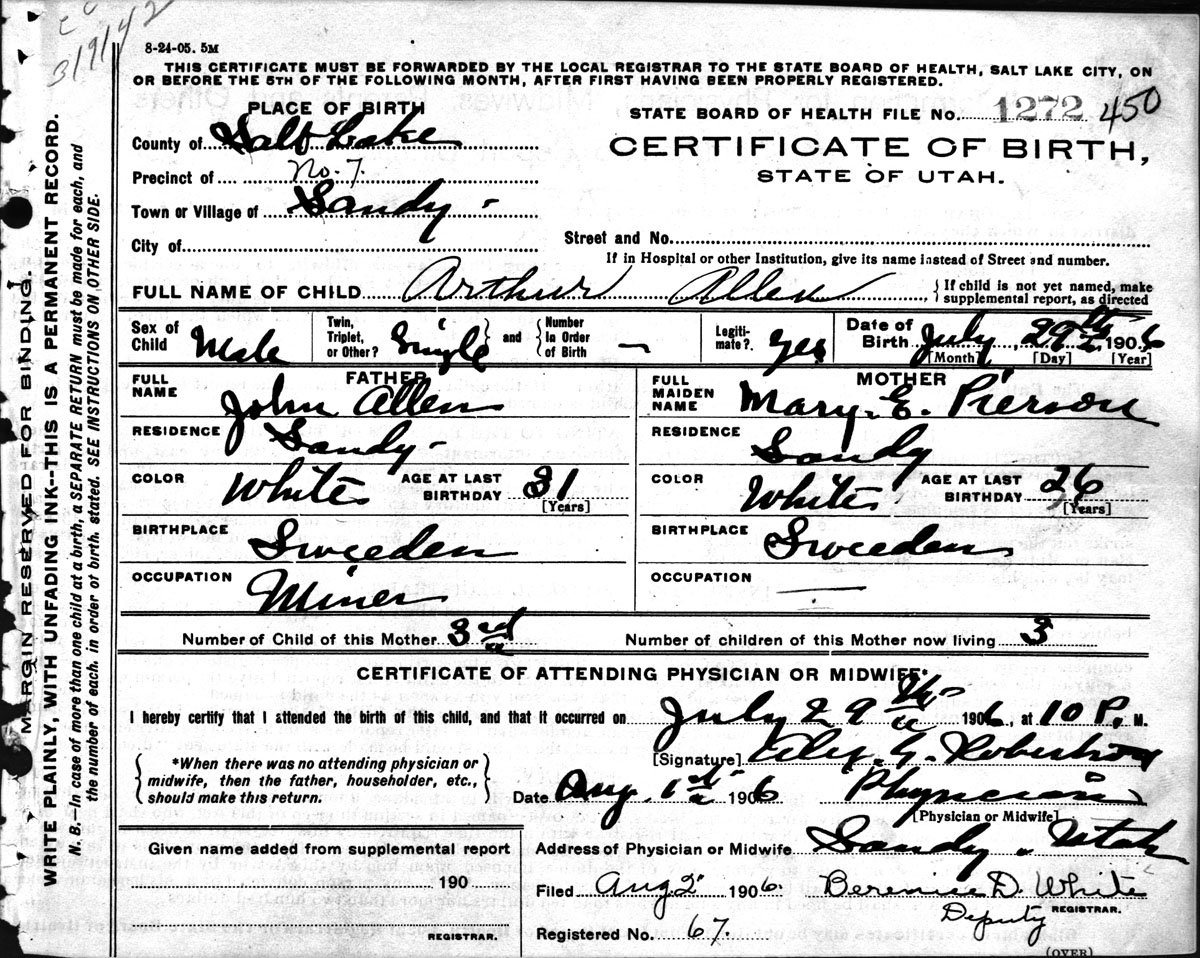 3/9/42
8-24-05. 5M
THIS CERTIFICATE MUST BE FORWARDED BY THE LOCAL REGISTRAR TO THE STATE BOARD OF HEALTH, SALT LAKE CITY, ON
OR BEFORE THE 5TH OF THE FOLLOWING MONTH, AFTER FIRST HAVING BEEN PROPERLY REGISTERED.
PLACE OF BIRTH
STATE BOARD OF HEALTH FILE No. 1272 450
County of Salt Lake
CERTIFICATE OF BIRTH,
Precinct of No. 7.
STATE OF UTAH.
Town or Village of Sandy -
City of
Street and No.
If in Hospital or other Institution, give its name instead of Street and number.
FULL NAME OF CHILD Arthur Allen { If child is not yet named, make
supplemental report, as directed
Sex of Child Male
Twin, Triplet, or Other? Single } and { Number In Order of Birth —
Legitimate? Yes
Date of Birth July, 29th 1906
[Month] [Day] [Year]
FATHER
FULL NAME John Allen
MOTHER
FULL MAIDEN NAME Mary. E. Pierson
RESIDENCE Sandy -
RESIDENCE Sandy
COLOR White AGE AT LAST BIRTHDAY 31 [Years]
COLOR White AGE AT LAST BIRTHDAY 26 [Years]
BIRTHPLACE Sweeden
BIRTHPLACE Sweeden
OCCUPATION Miner
OCCUPATION —
Number of Child of this Mother 3rd Number of children of this Mother now living 3
CERTIFICATE OF ATTENDING PHYSICIAN OR MIDWIFE*
I hereby certify that I attended the birth of this child, and that it occurred on July 29th 1906, at 10 P. M.
{ *When there was no attending physician or
midwife, then the father, householder, etc.,
should make this return. }
[Signature] Alex. G. Robertson
Date Aug. 1st 1906 Physician
[Physician or Midwife]
Given name added from supplemental report
190
REGISTRAR.
Address of Physician or Midwife Sandy. Utah
Filed Aug 2" 1906. Berenice D. White
Deputy REGISTRAR.
Registered No. 67.
(OVER)
MARGIN RESERVED FOR BINDING.
WRITE PLAINLY, WITH UNFADING INK--THIS IS A PERMANENT RECORD.
N. B.—In case of more than one child at a birth, a SEPARATE RETURN must be made for each, and
the number of each, in order of birth, stated. SEE INSTRUCTIONS ON OTHER SIDE.